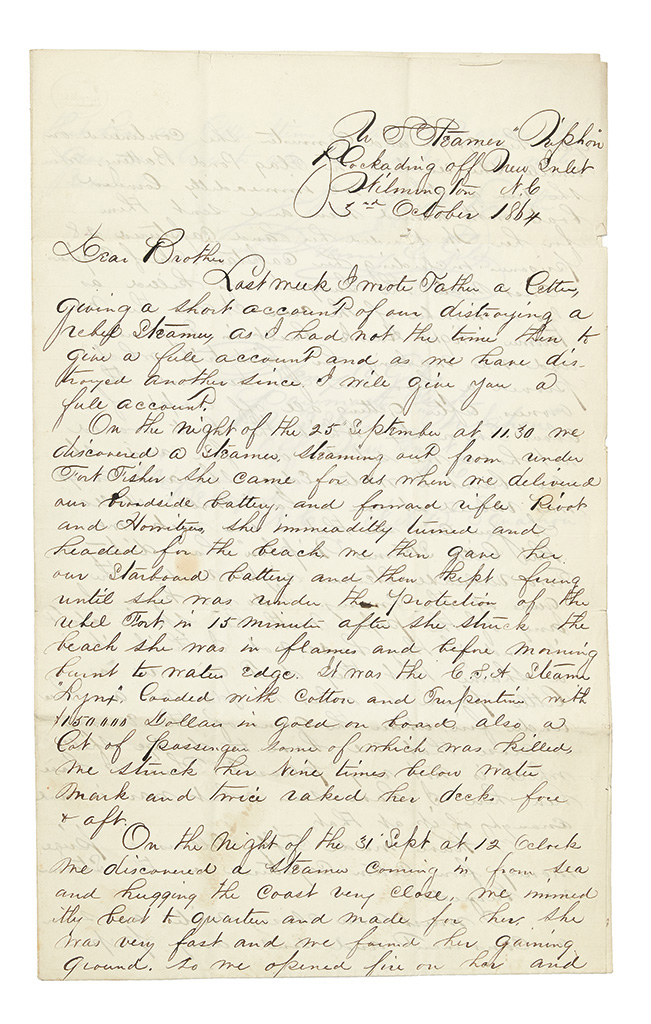 U S Steamer "Niphon
Blockading off New Inlet
Wilmington N.C
3rd October 1864
Dear Brother
Last week I wrote Father a letter,
giving a short account of our distroying a
rebel Steamer, as I had not the time then to
give a full account and as we have dis-
troyed another since I will give you a
full account.
On the night of the 25 September at 11.30 we
discovered a steamer, steaming out from under
Fort Fisher she came for us when we delivered
our broadside battery and forward rifle Pivot
and Howitzer, she immeaditly turned and
headed for the beach we then gave her
our Starboard battery and then kept firing
until she was under the protection of the
rebel Fort in 15 minutes after she struck the
beach she was in flames and before morning
burnt to waters Edge. It was the C.S.A Steamer
"Lynx" loaded with Cotton and Turpentine with
Dollars in gold on board also a
Lot of passenger some of which was killed,
we struck her Nine times below water
mark and twice raked her decks fore
& aft.
On the night of the 31 Sept at 12 Oclock
we discovered a steamer coming in from sea
and hugging the coast very close, we immed
itly beat to quarters and made for her, she
was very fast and we found her gaining
ground. so we opened fire on her and